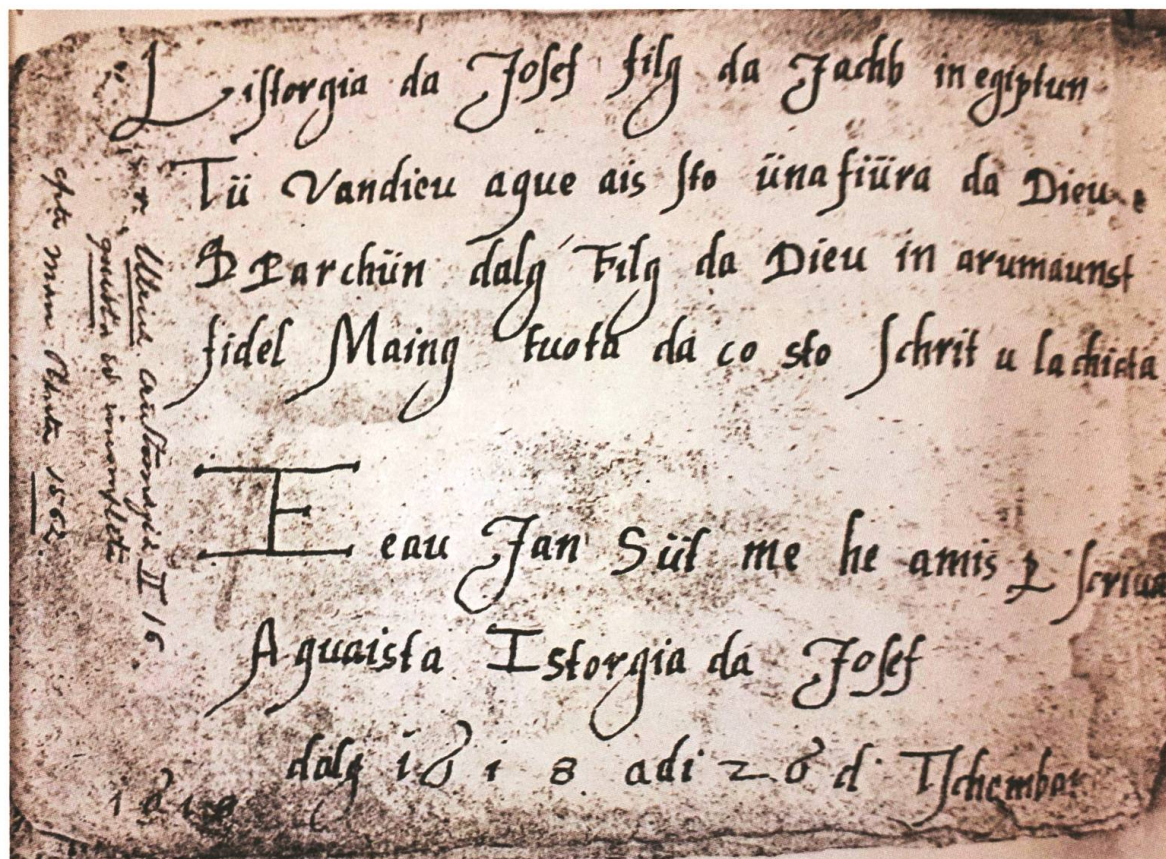 L istorgia da Josef filg da Jachb in egiptun
Tü Vandieu aque ais sto üna fiüra da Dieu e
P Parchün dalg Filg da Dieu in arumaunst
fidel Maing tuota da co sto schrit u la chiata
E eau Jan Süt me he amis p scriuar
Aquaista Istorgia da Josef
dalg 1618 adi 26 d Tschembar
1618
Ulrich II 16
1562